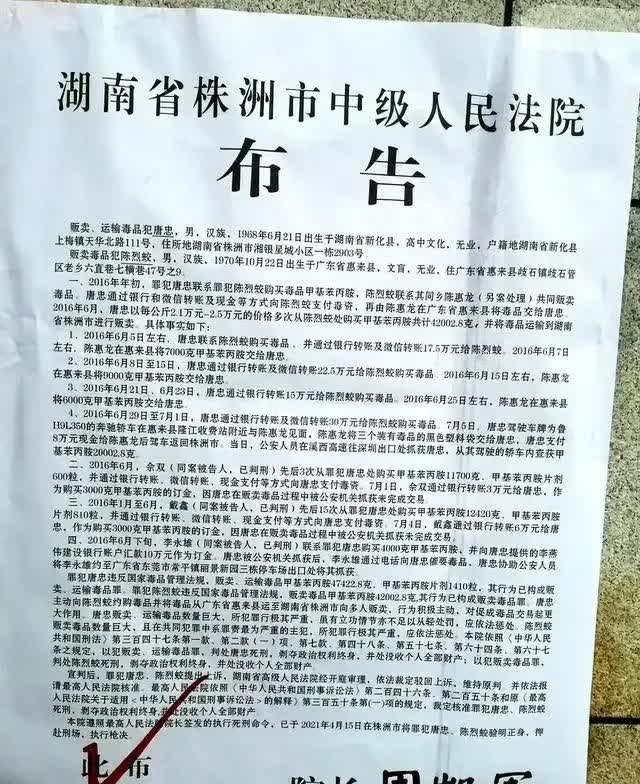 湖南省株洲市中级人民法院
布告
贩卖、运输毒品犯唐忠，男，汉族，1968年6月21日出生于湖南省新化县，高中文化，无业，户籍地湖南省新化县
上梅镇天华北路111号，住所地湖南省株洲市湘银星城小区一栋2903号。
贩卖毒品犯陈烈蛟，男，汉族，1970年10月22日出生于广东省惠来县，文盲，无业，住广东省惠来县歧石镇歧石管
区老乡六直巷七横巷47号之9。
一、2016年年初，罪犯唐忠联系罪犯陈烈蛟购买毒品甲基苯丙胺，陈烈蛟联系其同乡陈惠龙（另案处理）共同贩卖
毒品。唐忠通过银行和微信转账及现金等方式向陈烈蛟支付毒资，再由陈惠龙在广东省惠来县将毒品交给唐忠。
2016年6月，唐忠以每公斤2.1万元-2.5万元的价格多次从陈烈蛟处购买甲基苯丙胺共计42002.8克，并将毒品运输到湖南
省株洲市进行贩卖。具体事实如下：
1、2016年6月5日左右，唐忠联系陈烈蛟购买毒品，并通过银行及微信转账17.5万元给陈烈蛟。2016年6月7日
左右，陈惠龙在惠来县将7000克甲基苯丙胺交给唐忠。
2、2016年6月8日至15日，唐忠通过银行转账及微信转账22.5万元给陈烈蛟购买毒品。2016年6月15日左右，陈惠龙
在惠来县将9000克甲基苯丙胺交给唐忠。
3、2016年6月21日、6月23日，唐忠通过银行转账15万元给陈烈蛟购买毒品。2016年6月25日左右，陈惠龙在惠来县
将6000克甲基苯丙胺交给唐忠。
4、2016年6月29日至7月1日，唐忠通过银行转账及微信转账30万元给陈烈蛟购买毒品。7月5日，唐忠驾驶车牌为鲁
H9L350的奔驰轿车在惠来县隆江收费站附近与陈惠龙见面，陈惠龙将三个装有毒品的黑色塑料袋交给唐忠，唐忠支付
8万元现金给陈惠龙后驾车返回株洲市。当日，公安人员在溪西高速往深圳出口处抓获唐忠，从其驾驶的轿车内查获甲
基苯丙胺20002.8克。
二、2016年6月，佘双（同案被告人，已判刑）先后3次从罪犯唐忠处购买甲基苯丙胺11700克、甲基苯丙胺片剂
600粒，并通过银行转账、微信转账、现金支付等方式向唐忠支付毒资。7月1日，佘双通过银行转账3万元给唐忠，作
为购买3000克甲基苯丙胺的订金，因唐忠在贩卖毒品过程中被公安机关抓获未完成交易。
三、2016年1月至6月，戴鑫（同案被告人，已判刑）先后15次从罪犯唐忠处购买甲基苯丙胺12420克、甲基苯丙胺
片剂810粒，并通过银行转账、微信转账、现金支付等方式向唐忠支付毒资。7月4日，戴鑫通过银行转账6万元给唐
忠，作为购买3000克甲基苯丙胺的订金，因唐忠在贩卖毒品过程中被公安机关抓获未完成交易。
四、2016年6月下旬，李永雄（同案被告人，已判刑）联系罪犯唐忠购买4000克甲基苯丙胺，并向唐忠提供的李燕
伟建设银行账户汇款10万元作为订金。唐忠被公安机关抓获后，李永雄通过电话向唐忠催要毒品，唐忠协助公安人员
将李永雄约至广东省东莞市常平镇丽景新园三栋停车场出口处将其抓获。
罪犯唐忠违反国家毒品管理法规，贩卖、运输毒品甲基苯丙胺47422.8克、甲基苯丙胺片剂1410粒，其行为已构成贩
卖、运输毒品罪。罪犯陈烈蛟违反国家毒品管理法规，贩卖毒品甲基苯丙胺42002.8克，其行为已构成贩卖毒品罪。唐忠
主动向陈烈蛟约购毒品并将毒品从广东省惠来县运至湖南省株洲市向多人贩卖，行为积极主动，对促成毒品交易起更
大作用。唐忠贩卖、运输毒品数量巨大，所犯罪行极其严重，虽有立功情节亦不足以从轻处罚，应依法惩处。陈烈蛟
贩卖毒品数量巨大，且在共同犯罪中系罪责最为严重的主犯，所犯罪行极其严重，应依法惩处。本院依照《中华人民
共和国刑法》第三百四十七条第一款、第二款（一）项、第七条、第四十八条、第五十七条、第六十四条、第六十七
条之规定，以犯贩卖、运输毒品罪，判处唐忠死刑，剥夺政治权利终身，并处没收个人全部财产；以犯贩卖毒品罪，
判处陈烈蛟死刑，剥夺政治权利终身，并处没收个人全部财产。
宣判后，罪犯唐忠、陈烈蛟提出上诉，湖南省高级人民法院经开庭审理，依法裁定驳回上诉，维持原判，并依法报
请最高人民法院核准。最高人民法院依照《中华人民共和国刑事诉讼法》第二百四十六条、第二百五十条和原《最高人
民法院关于适用＜中华人民共和国刑事诉讼法＞的解释》第三百五十条第（一）项的规定，裁定核准罪犯唐忠、陈烈蛟
死刑，剥夺政治权利终身，并处没收个人全部财产。
本院遵照最高人民法院院长签发的执行死刑命令，已于2021年4月15日在株洲市将罪犯唐忠、陈烈蛟验明正身，押
赴刑场，执行枪决。
此布
院长